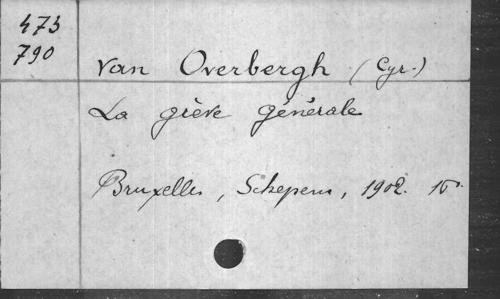 473
790
Van Overbergh (Cyr.)
La grève générale
Bruxelles, Schepens, 1902.